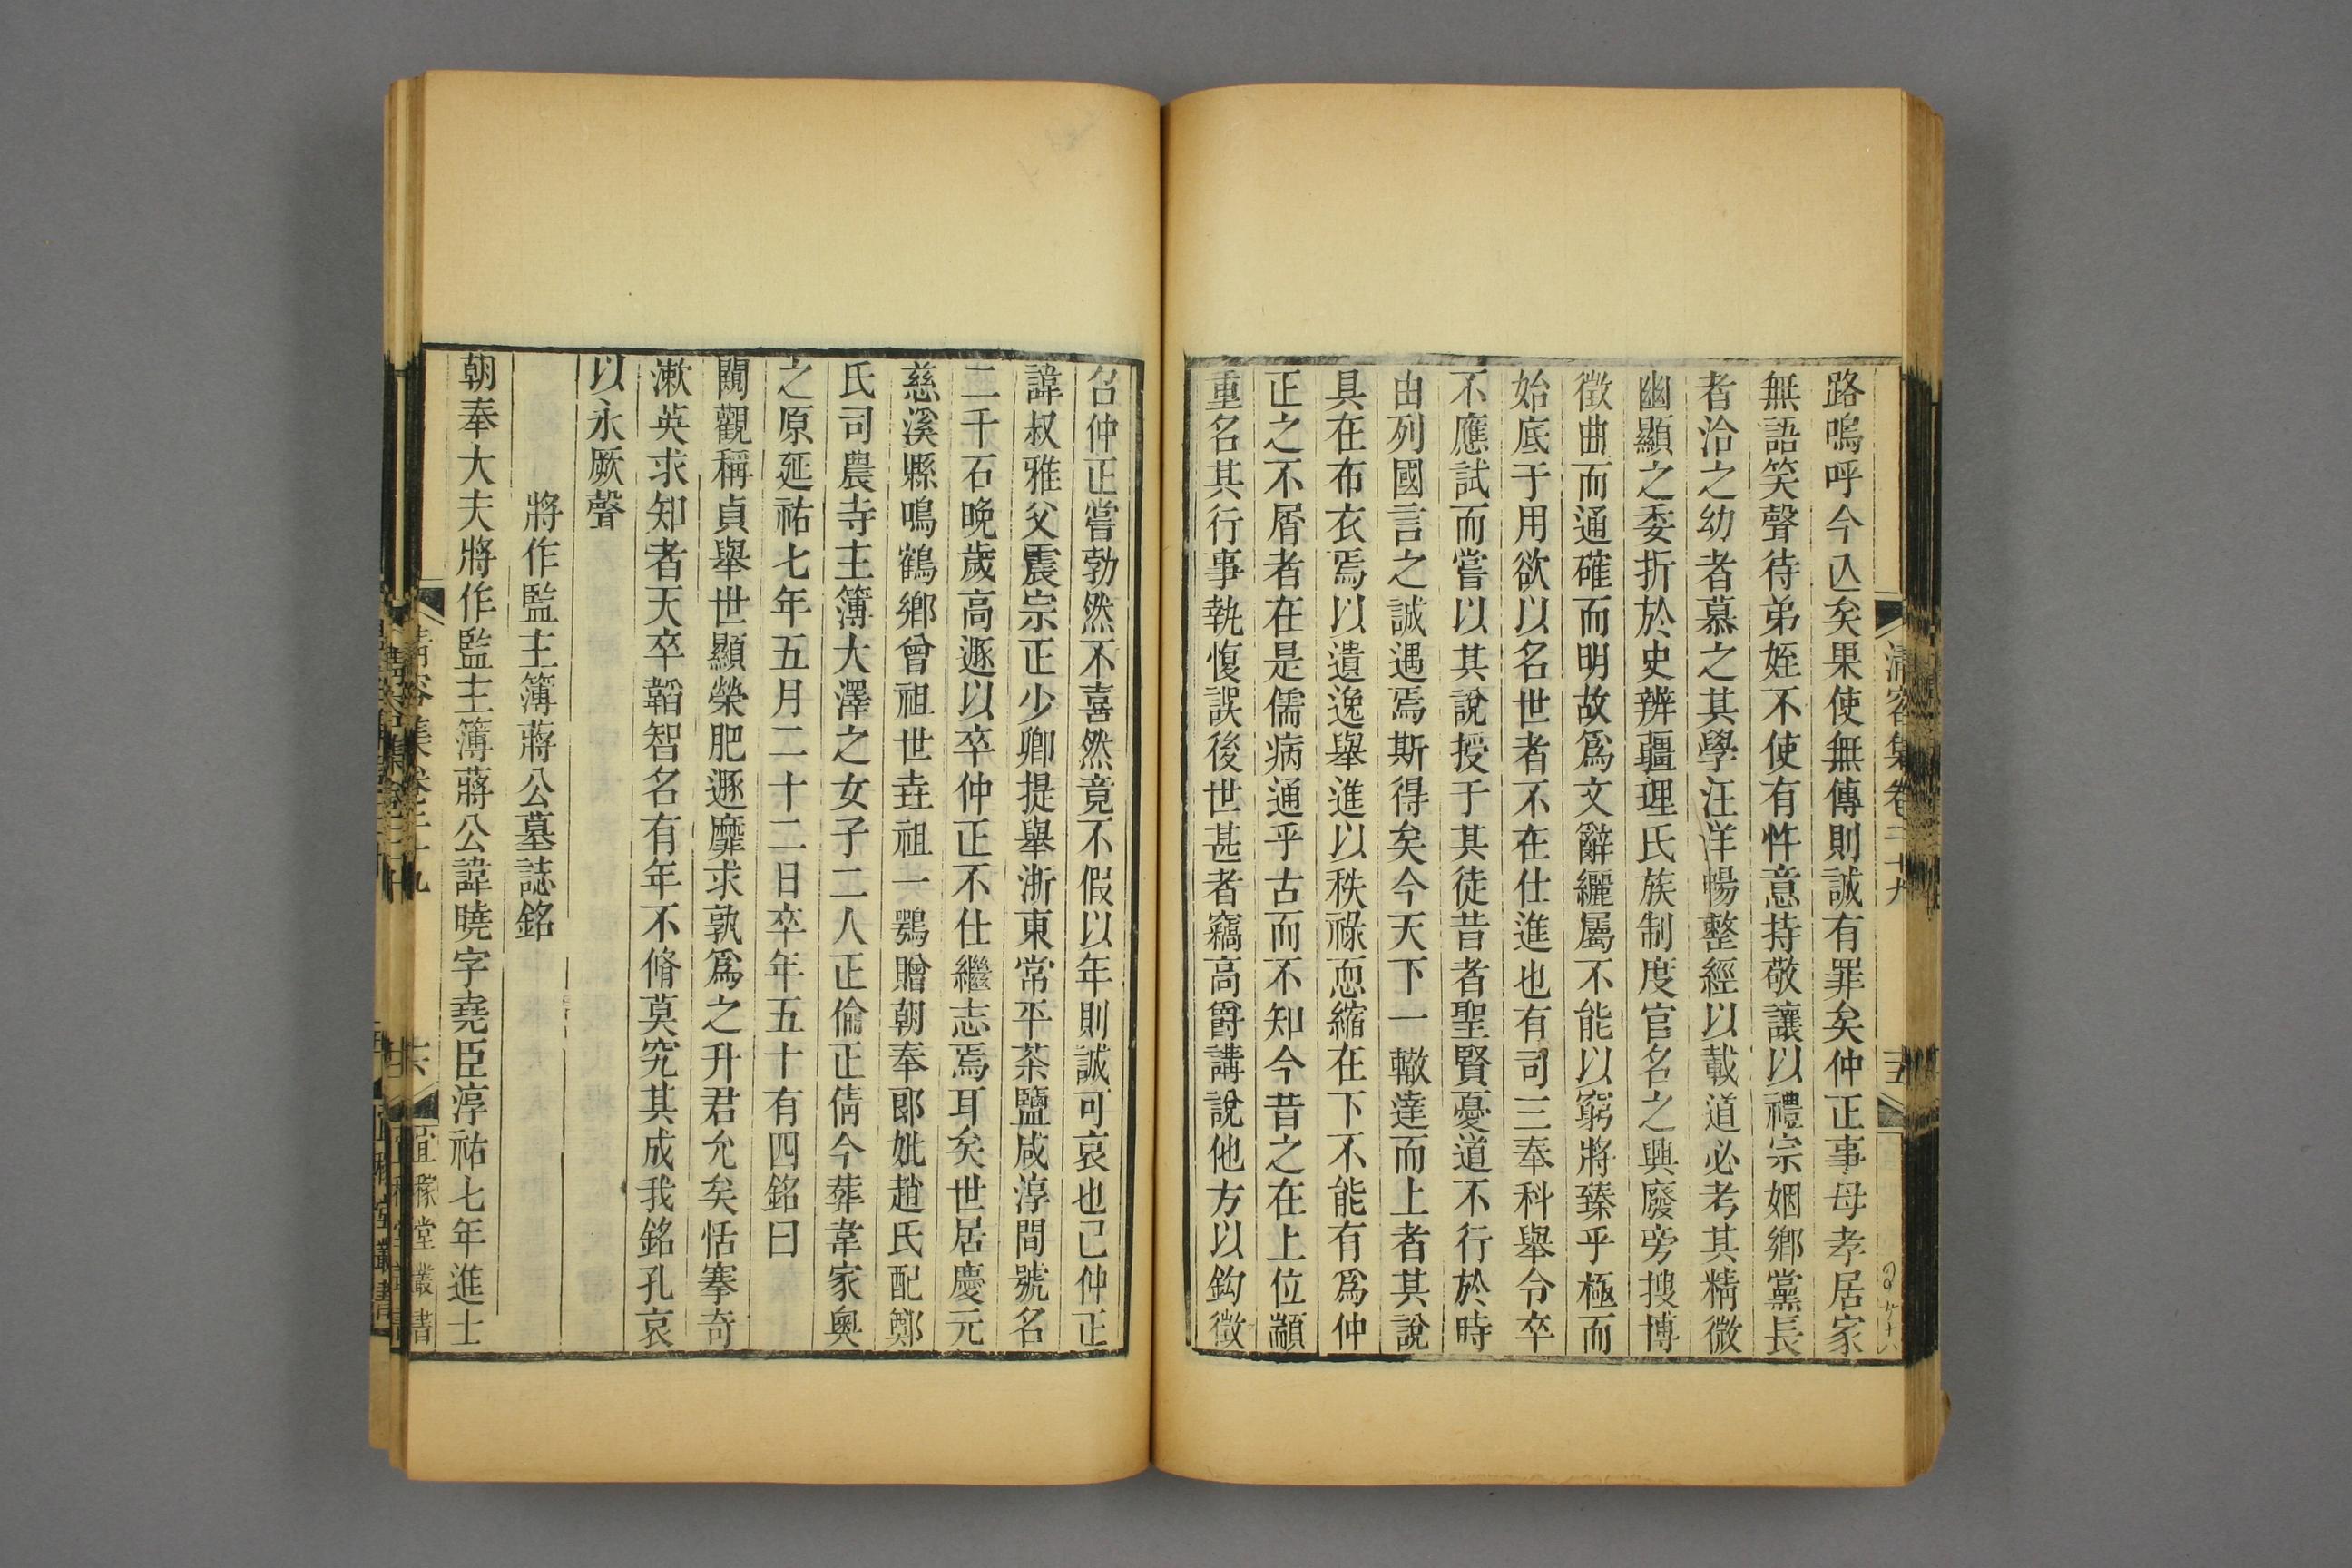 清容集卷二十九
十五
路嗚呼今亾矣果使無傳則誠有罪矣仲正事母孝居家
無語笑聲待弟姪不使有忤意持敬讓以禮宗姻鄉黨長
者洽之幼者慕之其學汪洋暢整經以載道必考其精微
幽顯之委折於史辨疆理氏族制度官名之興廢旁搜博
徵曲而通確而明故爲文辭纚屬不能以窮將臻乎極而
始底于用欲以名世者不在仕進也有司三奉科舉令卒
不應試而嘗以其說授于其徒昔者聖賢憂道不行於時
由列國言之誠遇焉斯得矣今天下一轍達而上者其說
具在布衣焉以遺逸舉進以秩祿恧縮在下不能有爲仲
正之不屑者在是儒病通乎古而不知今昔之在上位顓
重名其行事執愎誤後世甚者竊高爵講說他方以鈎徵
召仲正嘗勃然不喜然竟不假以年則誠可哀也已仲正
諱叔雅父震宗正少卿提舉浙東常平茶鹽咸淳間號名
二千石晚歲高遯以卒仲正不仕繼志焉耳矣世居慶元
慈溪縣鳴鶴鄉曾祖世垚祖一鶚贈朝奉郎妣趙氏配鄭
氏司農寺主簿大澤之女子二人正倫正倩今葬韋家奧
之原延祐七年五月二十二日卒年五十有四銘曰
闚觀稱貞舉世顯榮肥遯靡求孰爲之升君允矣恬搴奇
漱英求知者天卒韜智名有年不脩莫究其成我銘孔哀
以永厥聲
將作監主簿蔣公墓誌銘
朝奉大夫將作監主簿蔣公諱曉字堯臣淳祐七年進士
清容集卷二十九
十六
宜稼堂叢書